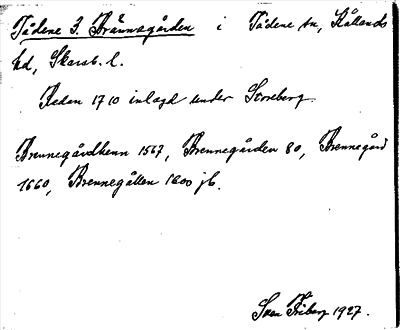 Tådene 3. Brännegården i Tådene sn, Kållands
hd, Skarab. l.
Redan 1710 inlagd under Storeberg.
Brennegårdhenn 1567, Brennegården 80, Brennegård
1660, Brennegålten 1600 jb.
Sven Friberg 1927.